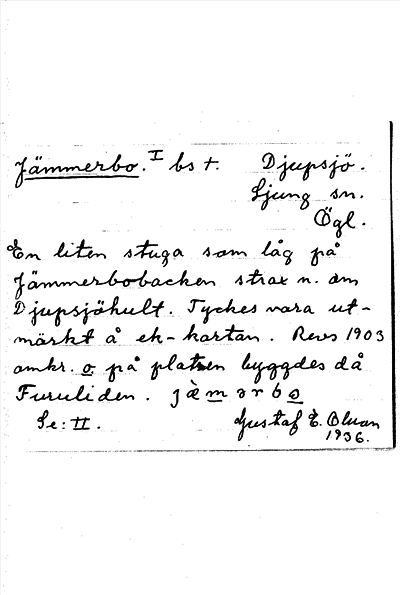 Jämmerbo. I bs †. Djupsjö.
Ljung sn.
Ögl.
En liten stuga som låg på
Jämmerbobacken strax n. om
Djupsjöhult. Tyckes vara ut-
märkt å ek-kartan. Revs 1903
omkr. o på platsen byggdes då
Furuliden. jä̀mərbo
Se: II. Gustaf E. Olsson
1936.